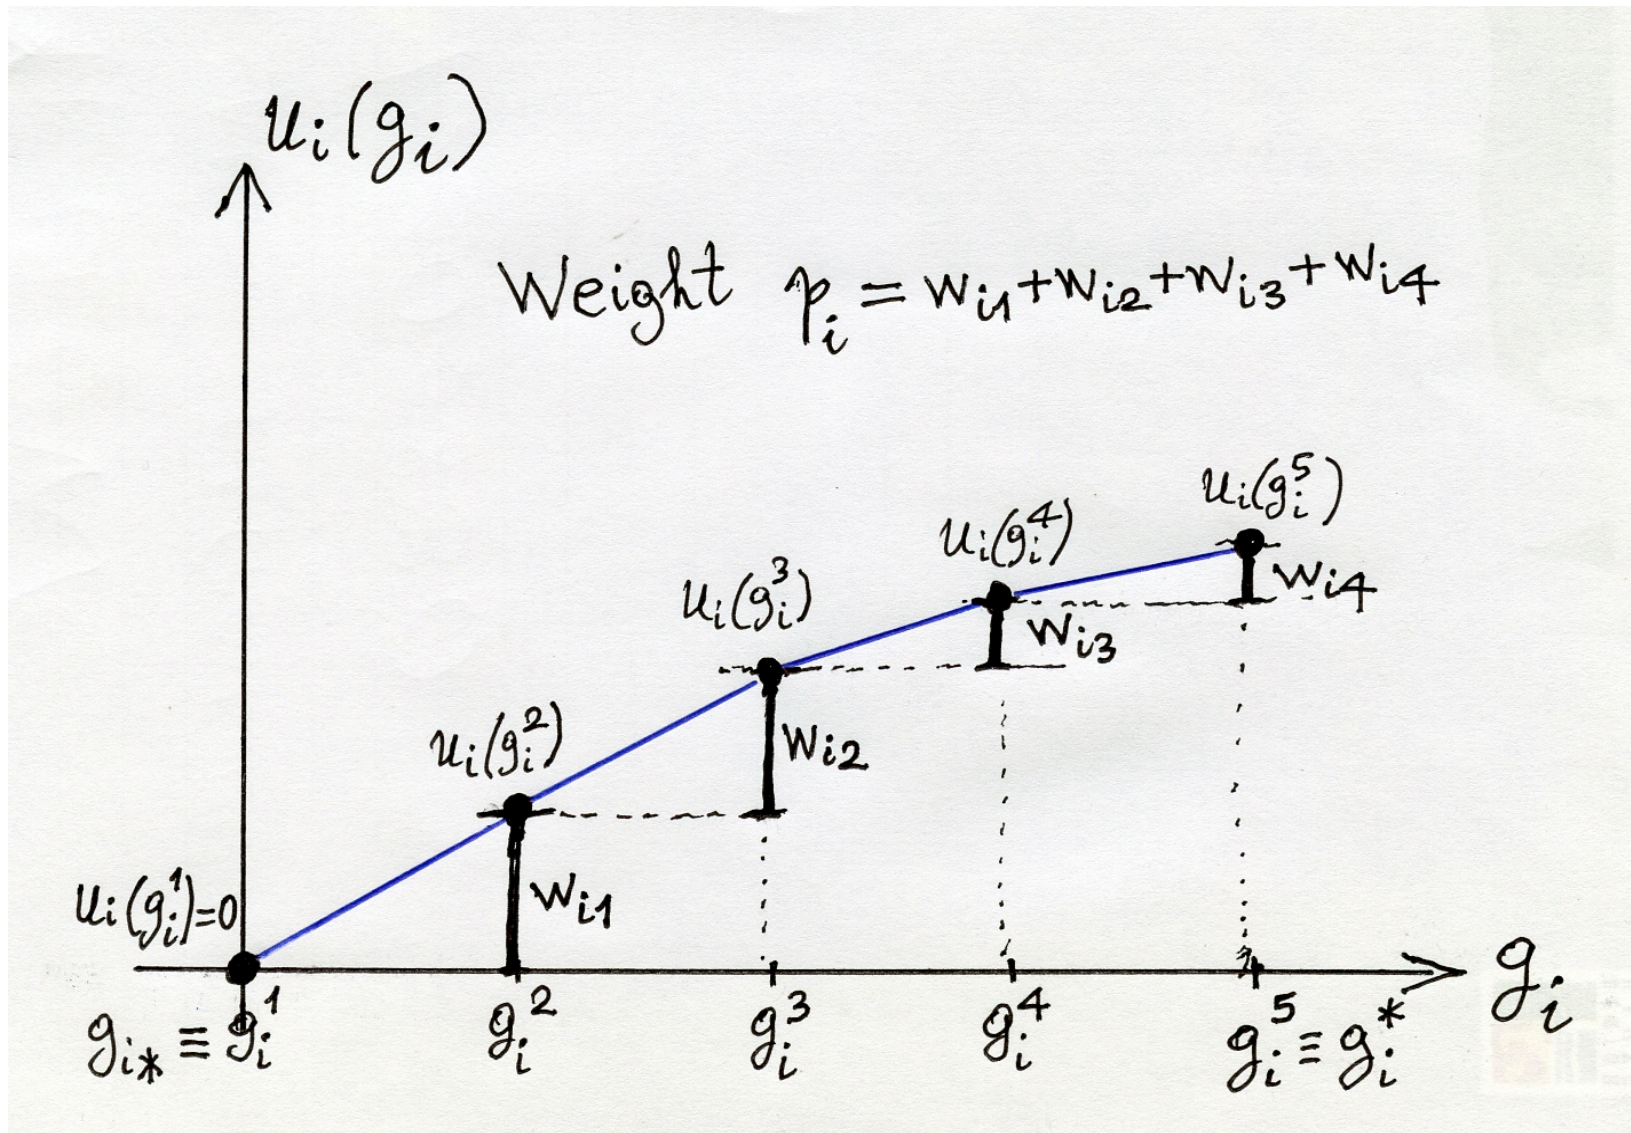 uᵢ(gᵢ)
Weight pᵢ = wᵢ₁+wᵢ₂+wᵢ₃+wᵢ₄
uᵢ(gᵢ⁵)
uᵢ(gᵢ⁴)
wᵢ₄
uᵢ(gᵢ³)
wᵢ₃
uᵢ(gᵢ²)
wᵢ₂
uᵢ(gᵢ¹)=0
wᵢ₁
gᵢ
gᵢ* ≡ gᵢ¹ gᵢ² gᵢ³ gᵢ⁴ gᵢ⁵ ≡ gᵢ*